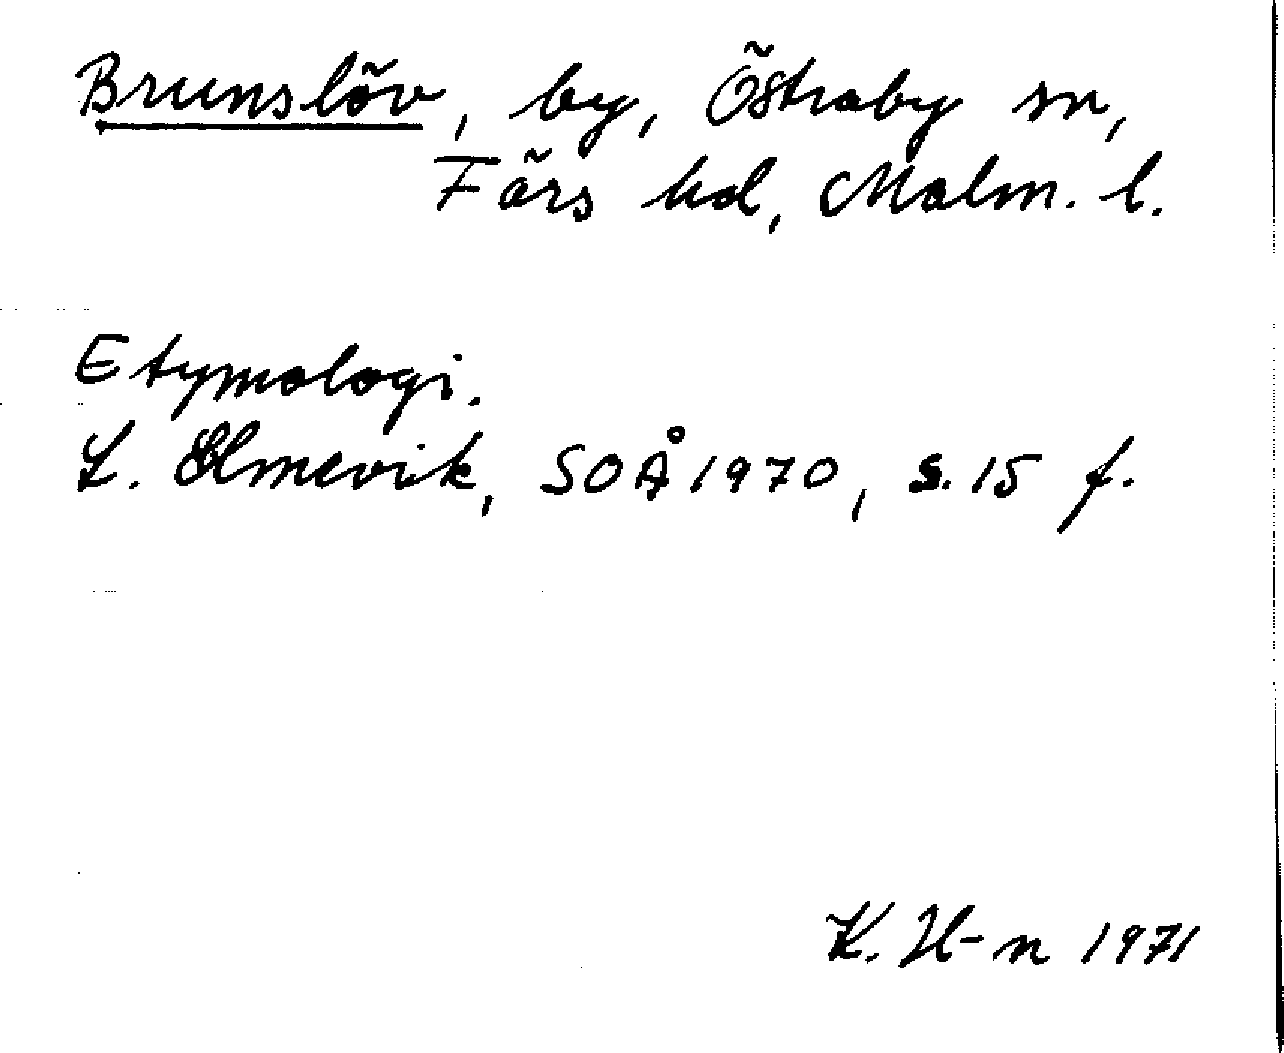 Brunslöv, by, Östraby sn,
Färs hd, Malm. l.
Etymologi.
L. Elmevik, SOÅ 1970, s. 15 f.
K. H-n 1971